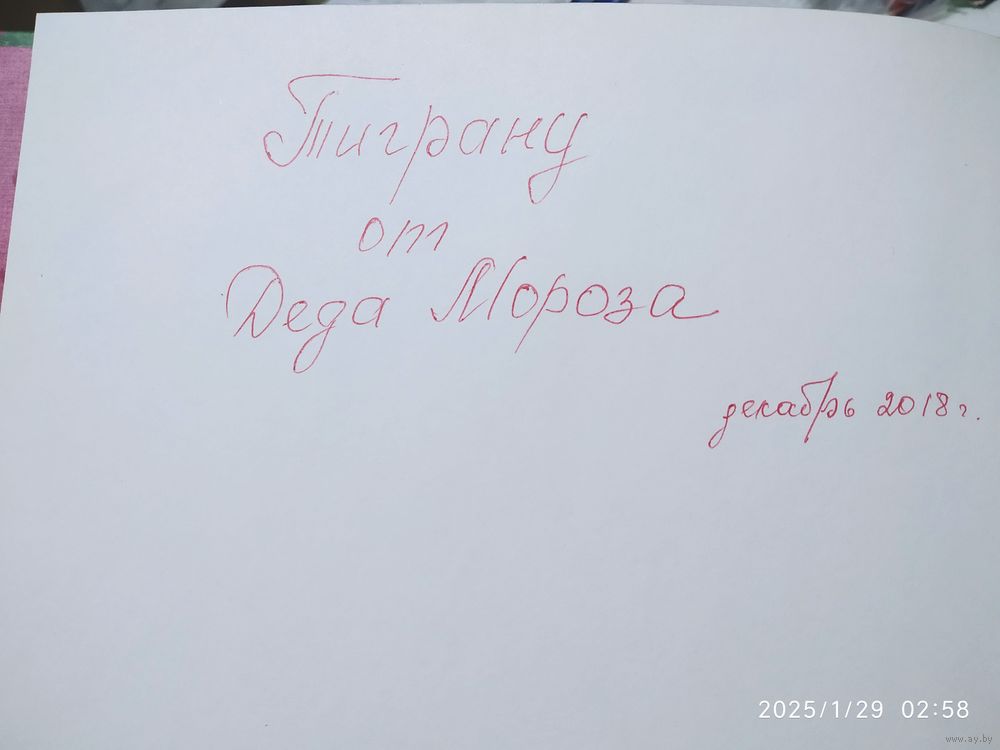 Тиграну
от
Деда Мороза
декабрь 2018 г.
2025/1/29 02:58
www.ay.by